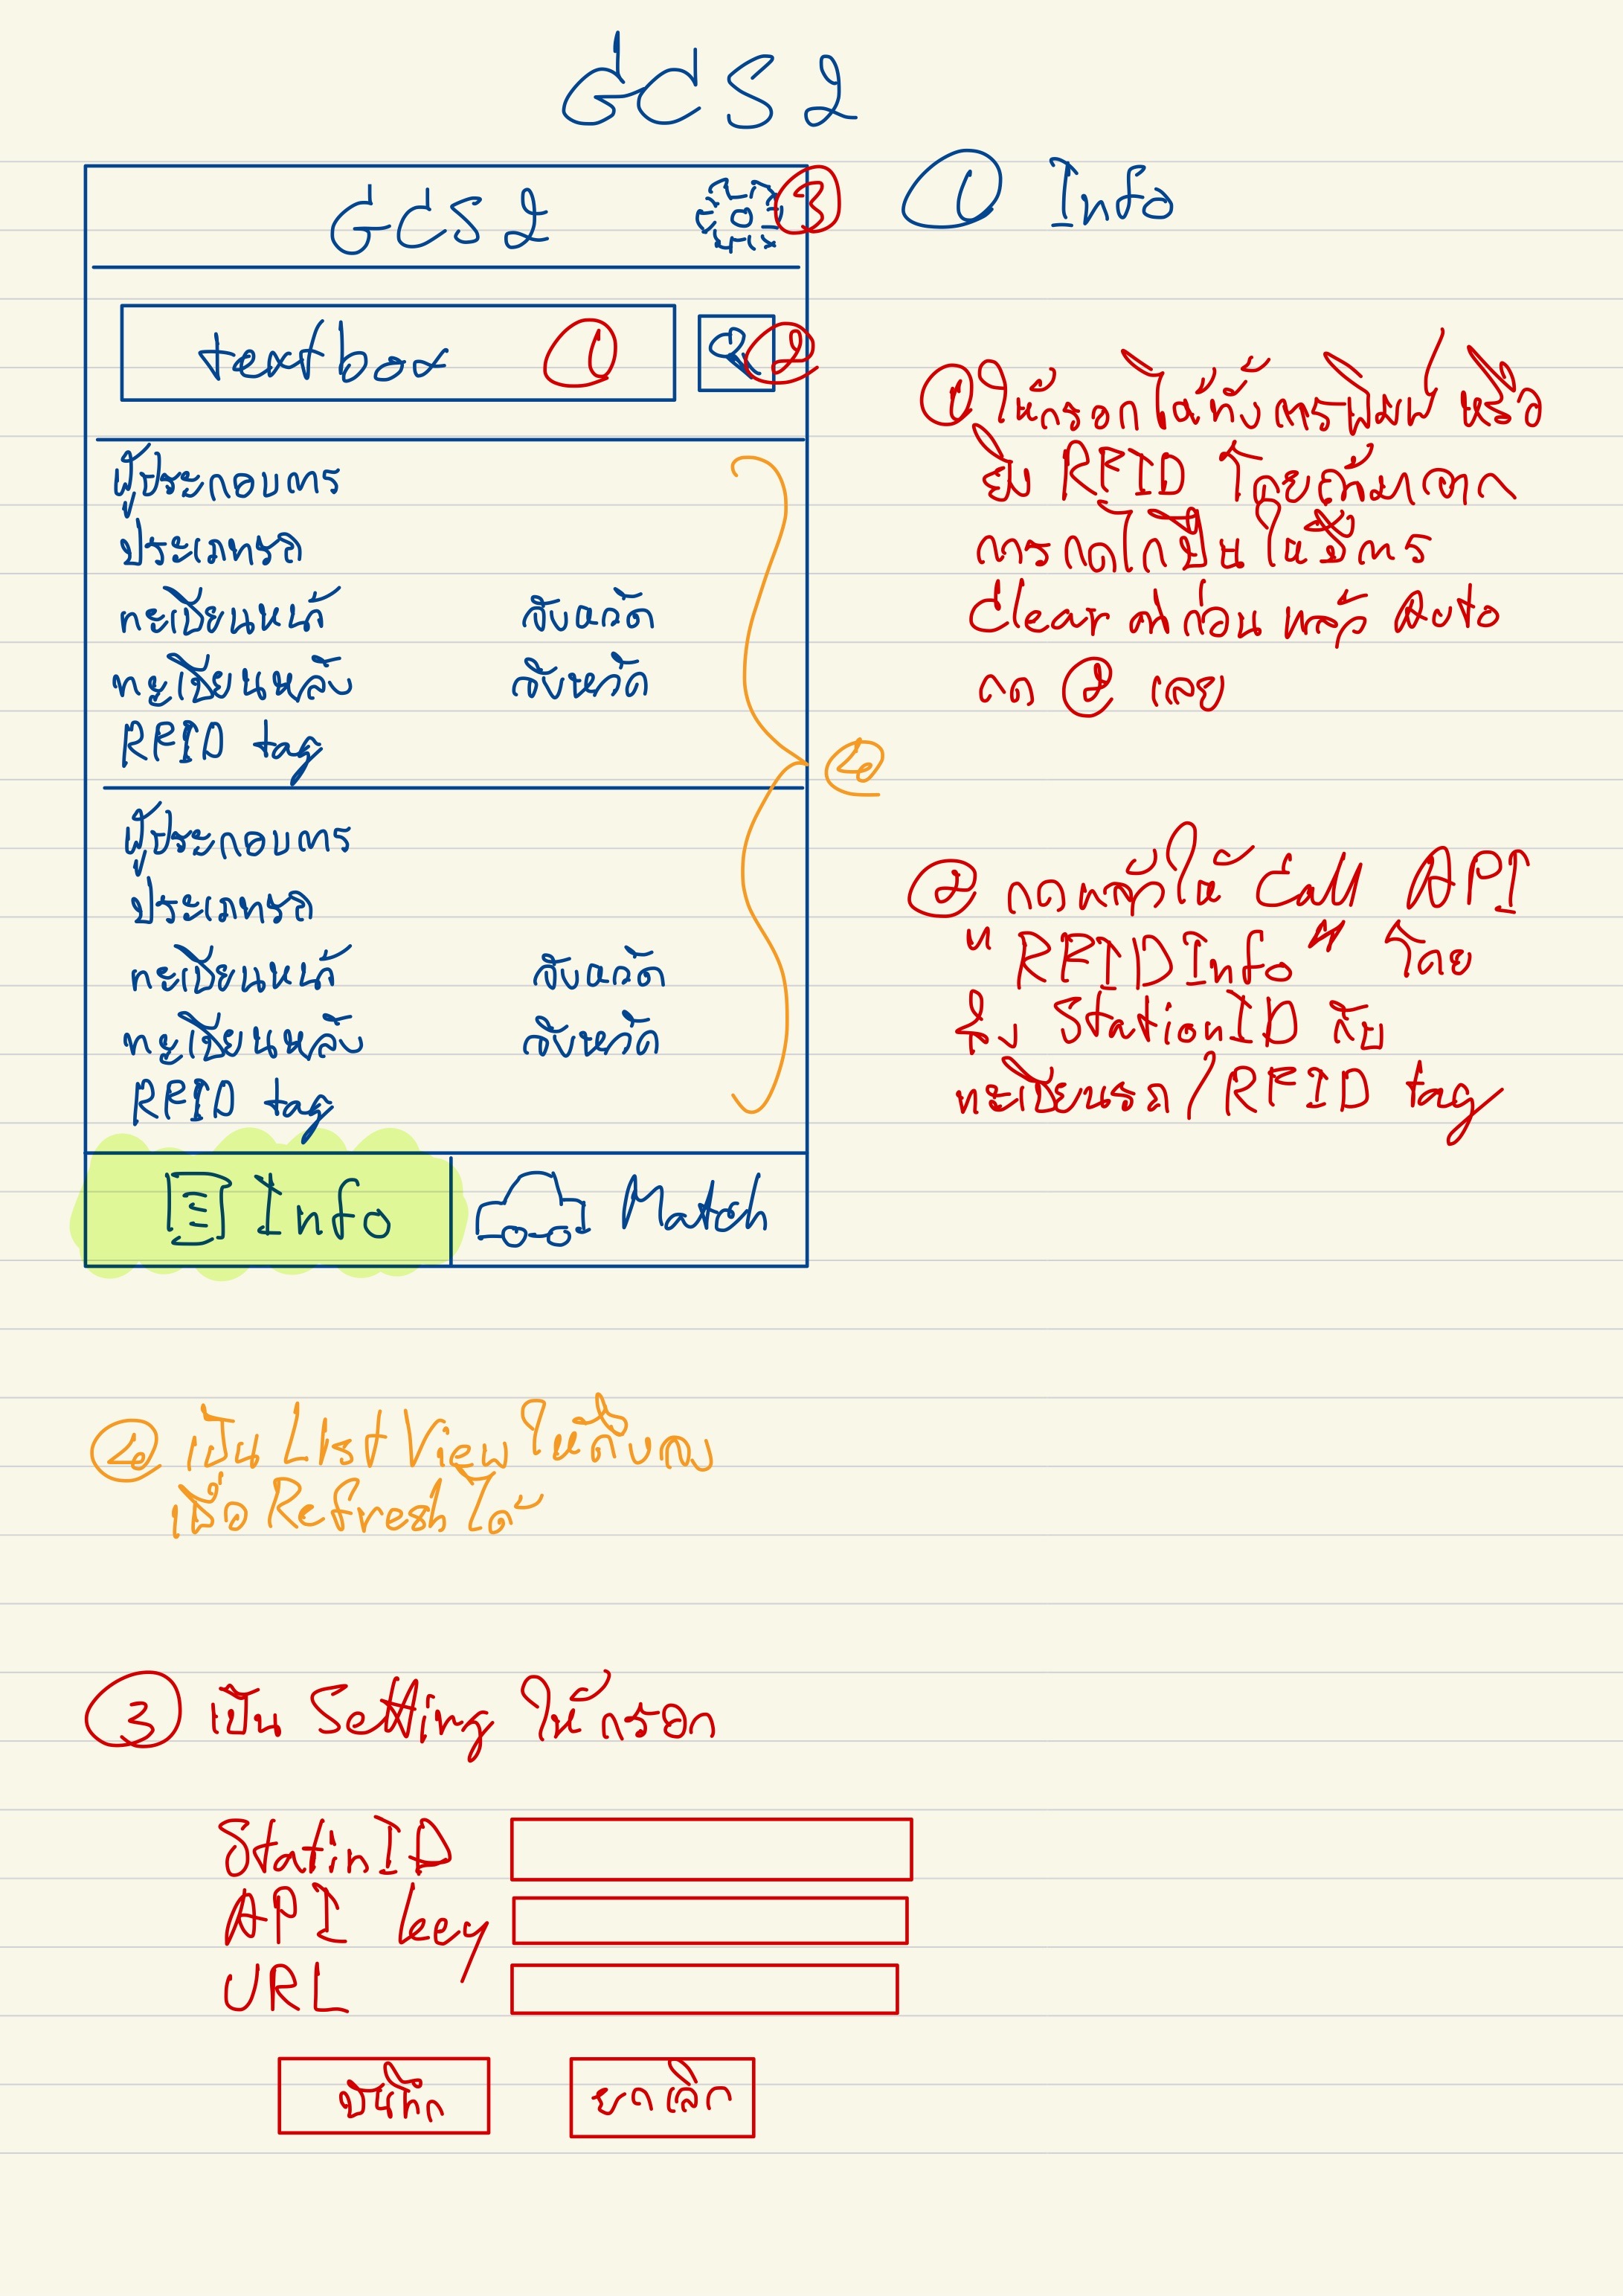 GCS2
GCS2 ③
① Info
textbox ① ②
ผู้ประกอบการ
ประเภทรถ
ทะเบียนหน้า จังหวัด
ทะเบียนหลัง จังหวัด
RFID tag
④
ผู้ประกอบการ
ประเภทรถ
ทะเบียนหน้า จังหวัด
ทะเบียนหลัง จังหวัด
RFID tag
Info Match
① ให้กรอกได้ทั้งการพิมพ์ หรือ
ยิง RFID โดยถ้ามาจาก
การกดไกปืน ให้มีการ
Clear ค่าก่อน แล้ว Auto
กด ② เลย
② กดแล้วให้ Call API
" RFIDInfo " โดย
ส่ง StationID กับ
ทะเบียนรถ / RFID tag
④ เป็น List View ให้ดึงลง
เพื่อ Refresh ได้
③ เป็น Setting ให้กรอก
StatinID
API key
URL
บันทึก ยกเลิก